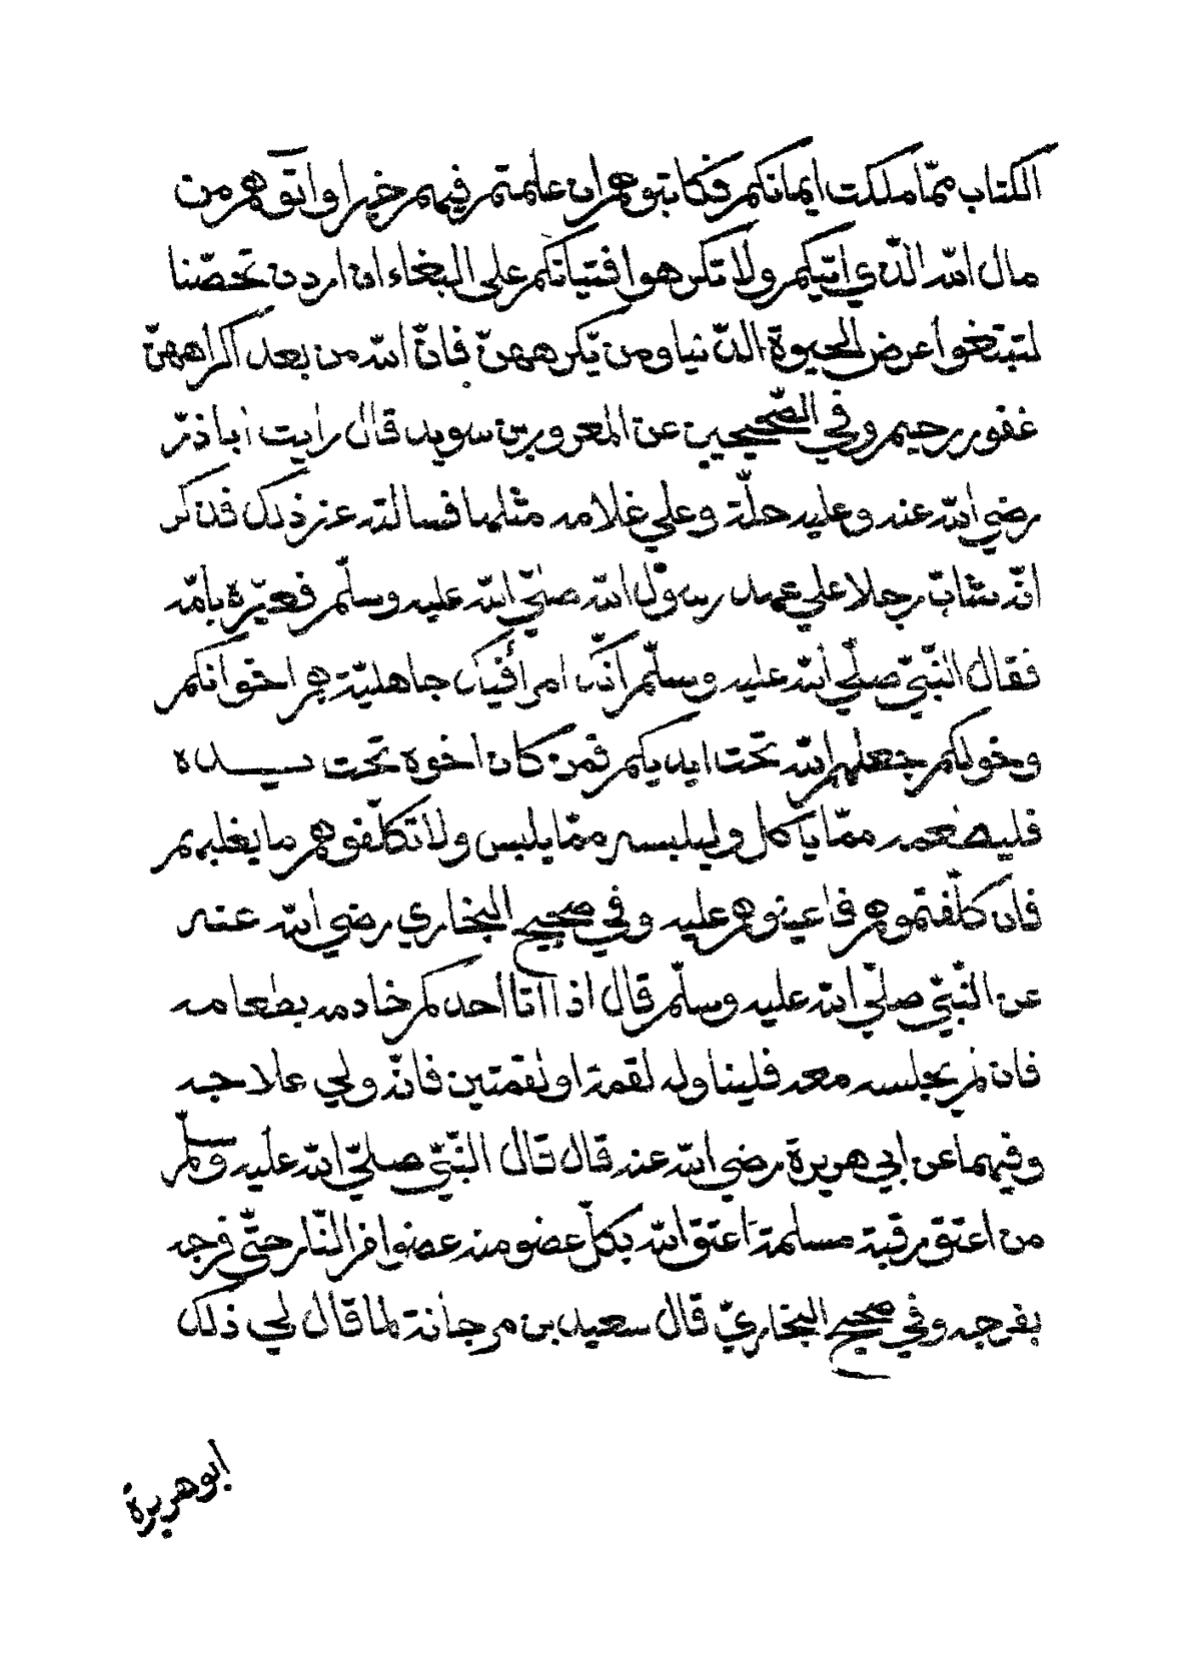 الكتاب ممّا ملكت ايمانكم فكاتبوهم ان علمتم فيهم خيرا واتوهم من
مال الله الذي اتيكم ولا تكرهوا فتياتكم على البغاء ان اردن تحصّنا
لتبتغوا عرض الحيوة الدّنيا ومن يّكرههنّ فانّ الله من بعد اكراههنّ
غفور رحيم وفي الصّحيحين عن المعرور بن سويد قال رايت اباذرّ
رضي الله عنه وعليه حلّة وعلي غلامه مثلها فسالته عن ذلك فذكر
انّه سابّ رجلا علي عهد رسول الله صلّي الله عليه وسلّم فعيّره بامّه
فقال النّبيّ صلّي الله عليه وسلّم انّك امرأ فيك جاهليّة هم اخوانكم
وخولكم جعلهم الله تحت ايديكم فمن كان اخوه تحت يـــده
فليطعمه ممّا ياكل وليلبسه ممّا يلبس ولا تكلّفوهم ما يغلبهم
فان كلّفتموهم فاعينوهم عليه وفي صحيح البخاري رضي الله عنه
عن النّبيّ صلّي الله عليه وسلّم قال اذا اتا احدكم خادمه بطعامه
فان لم يجلسه معه فليناوله لقمة او لقمتين فانّه ولي علاجه
وفيهما عن ابي هريرة رضي الله عنه قال قال النّبيّ صلّي الله عليه وسلّم
من اعتق رقبة مسلمة اعتق الله بكلّ عضو منه عضوا من النّار حتّي فرجه
بفرجه وفي صحيح البخاريّ قال سعيد بن مرجانة لما قال لي ذلك
ابوهريرة